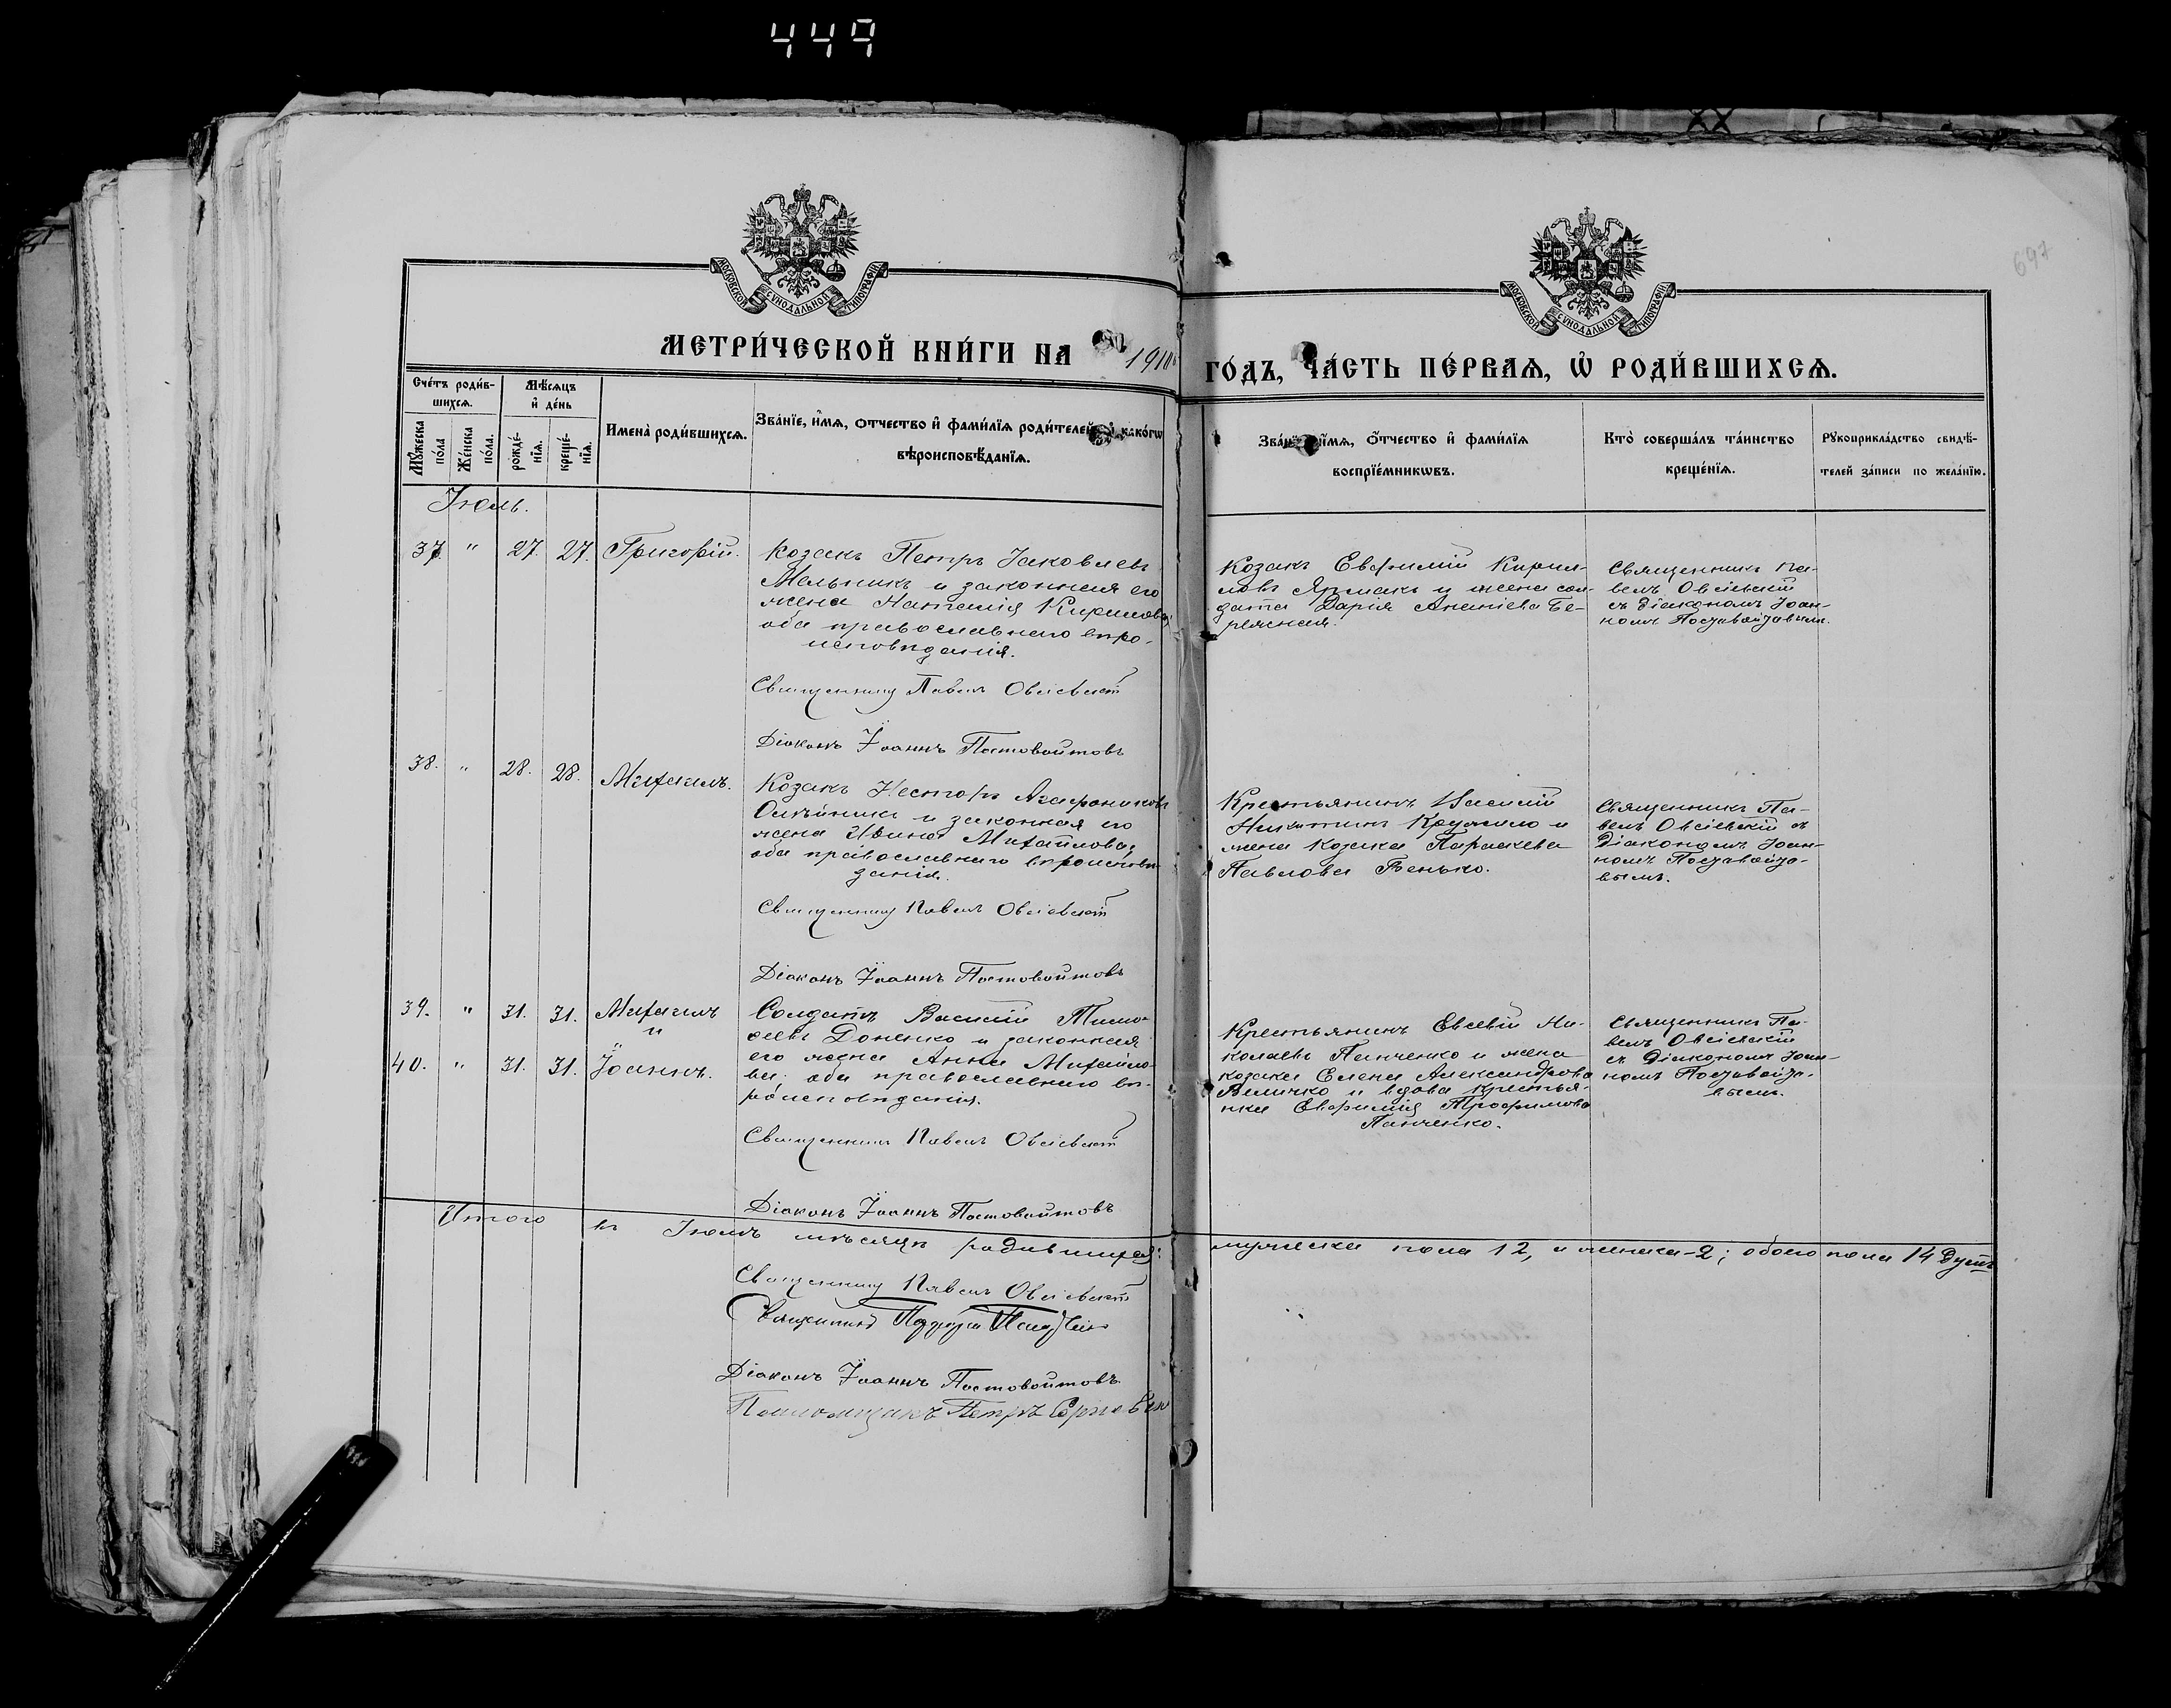 449
697
МОСКОВСКОЙ СѴНОДАЛЬНОЙ ТИПОГРАФІИ
МОСКОВСКОЙ СѴНОДАЛЬНОЙ ТИПОГРАФІИ
МЕТРИ́ЧЕСКОЙ КНИ́ГИ НА 191
ГО́ДЪ, ЧА́СТЬ ПЕ́РВАѦ, Ѽ РОДИ́ВШИХСѦ.
Сче́тъ роди́в-
шихсѧ.
Мꙋ́жеска
по́ла
Же́нска
по́ла.
Мѣ́сѧцъ
и҆ де́нь
рожде́-
нїѧ.
креще́-
нїѧ.
Имена̀ роди́вшихсѧ.
Зва́нїе, и҆́мѧ, ѻ҆́тчество и҆ фами́лїѧ роди́телей, како́гѡ
вѣроисповѣ́данїѧ.
Зва́нїе, и҆́мѧ, ѻ҆́тчество и҆ фами́лїѧ
воспрїе́мникѡвъ.
Кто̀ соверша́лъ та́инство
креще́нїѧ.
Рꙋкоприкла́дство свидѣ́-
телей за́писи по жела́нїю.
Іюль.
37. " 27. 27. Григорій.
Козакъ Петръ Іаковлевъ
Мельникъ и законная его
жена Наталія Кирилова;
оба православнаго вѣро-
исповѣданія.
Священникъ Павелъ Овсіевскій
Діаконъ Іоаннъ Постовойтовъ
Козакъ Евфимій Кирил-
ловъ Ярмакъ и жена сол-
дата Дарія Ананіева Бе-
режная.
Священникъ Па-
велъ Овсіевскій
съ діакономъ Іоан-
номъ Постовойтовымъ.
38. " 28. 28. Михаилъ.
Козакъ Несторъ Агафониковъ
Олѣйникъ и законная его
жена Ирина Михайлова;
оба православнаго вѣроисповѣ-
данія.
Священникъ Павелъ Овсіевскій
Діаконъ Іоаннъ Постовойтовъ
Крестьянинъ Василій
Никитинъ Кружило и
жена козака Параскева
Павлова Бенько.
Священникъ Па-
велъ Овсіевскій съ
Діакономъ Іоан-
номъ Постовойто-
вымъ.
39. " 31. 31. Михаилъ
и
40. " 31. 31. Іоаннъ.
Солдатъ Василій Тимо-
ѳеевъ Доненко и законная
его жена Анна Михайло-
ва; оба православнаго вѣ-
роисповѣданія.
Священникъ Павелъ Овсіевскій
Діаконъ Іоаннъ Постовойтовъ
Крестьянинъ Евсевій Ни-
колаевъ Панченко и жена
козака Елена Александрова
Величко и вдова крестья-
нка Евфимія Трофимова
Панченко.
Священникъ Па-
велъ Овсіевскій
съ Діакономъ Іоан-
номъ Постовойто-
вымъ.
Итого въ Іюлѣ мѣсяцѣ родившихся: мужеска пола 12, и женска-2; обоего пола 14 душъ
Священникъ Павелъ Овсіевскій
Священникъ
Діаконъ Іоаннъ Постовойтовъ.
Псаломщикъ Петръ